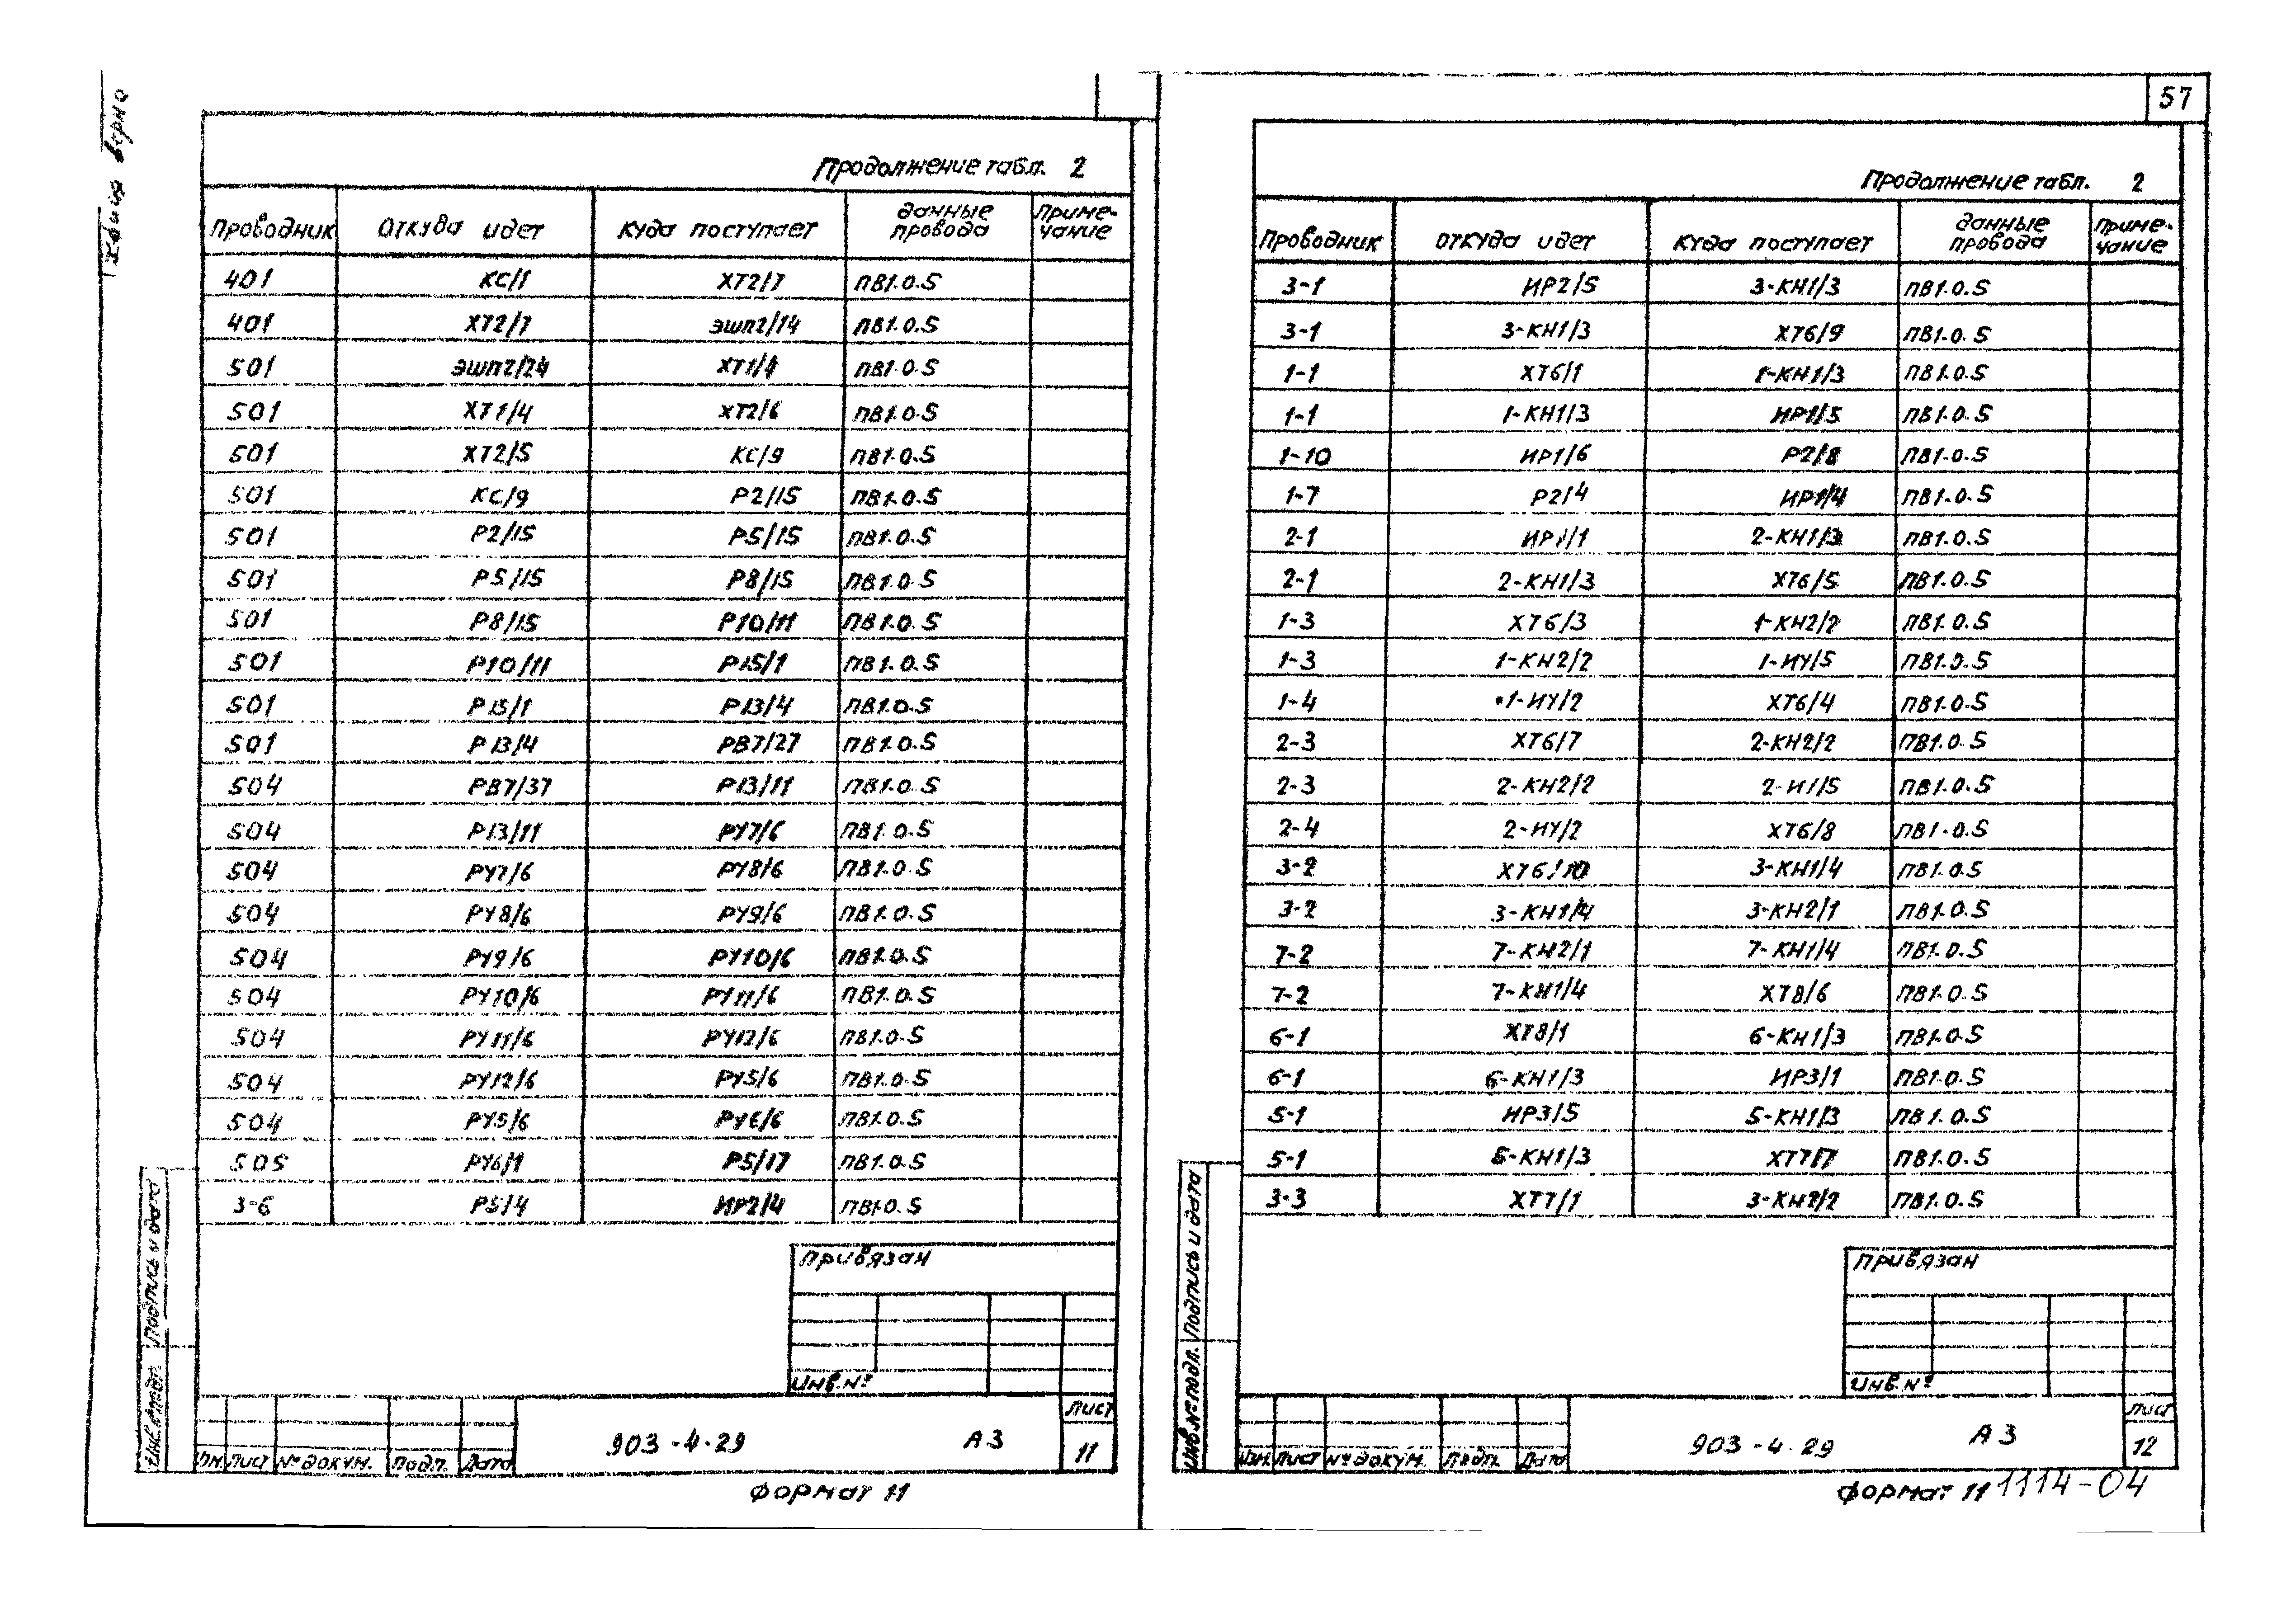 Копия верна
Продолжение табл. 2
Проводник Откуда идет Куда поступает Данные провода Примечание
401 КС/1 ХТ2/7 ПВ1.0.5
401 ХТ2/7 ЭШП2/14 ПВ1.0.5
501 ЭШП2/24 ХТ1/4 ПВ1.0.5
501 ХТ1/4 ХТ2/6 ПВ1.0.5
501 ХТ2/5 КС/9 ПВ1.0.5
501 КС/9 Р2/15 ПВ1.0.5
501 Р2/15 Р5/15 ПВ1.0.5
501 Р5/15 Р8/15 ПВ1.0.5
501 Р8/15 Р10/11 ПВ1.0.5
501 Р10/11 Р15/1 ПВ1.0.5
501 Р15/1 Р13/4 ПВ1.0.5
501 Р13/4 РВ7/27 ПВ1.0.5
504 РВ7/37 Р13/11 ПВ1.0.5
504 Р13/11 РУ7/6 ПВ1.0.5
504 РУ7/6 РУ8/6 ПВ1.0.5
504 РУ8/6 РУ9/6 ПВ1.0.5
504 РУ9/6 РУ10/6 ПВ1.0.5
504 РУ10/6 РУ11/6 ПВ1.0.5
504 РУ11/6 РУ12/6 ПВ1.0.5
504 РУ12/6 РУ5/6 ПВ1.0.5
504 РУ5/6 РУ6/6 ПВ1.0.5
505 РУ6/1 Р5/17 ПВ1.0.5
3-6 Р5/4 ИР2/4 ПВ1.0.5
Привязан
Инв.№
Инв.№подл. Подпись и дата
Изм. Лист № докум. Подп. Дата
903-4-29 А3
Лист
11
Формат 11
57
Продолжение табл. 2
Проводник Откуда идет Куда поступает Данные провода Примечание
3-1 ИР2/5 3-КН1/3 ПВ1.0.5
3-1 3-КН1/3 ХТ6/9 ПВ1.0.5
1-1 ХТ6/1 1-КН1/3 ПВ1.0.5
1-1 1-КН1/3 ИР1/5 ПВ1.0.5
1-10 ИР1/6 Р2/8 ПВ1.0.5
1-7 Р2/4 ИР1/4 ПВ1.0.5
2-1 ИР1/1 2-КН1/3 ПВ1.0.5
2-1 2-КН1/3 ХТ6/5 ПВ1.0.5
1-3 ХТ6/3 1-КН2/2 ПВ1.0.5
1-3 1-КН2/2 1-ИУ/5 ПВ1.0.5
1-4 1-ИУ/2 ХТ6/4 ПВ1.0.5
2-3 ХТ6/7 2-КН2/2 ПВ1.0.5
2-3 2-КН2/2 2-И1/5 ПВ1.0.5
2-4 2-ИУ/2 ХТ6/8 ПВ1.0.5
3-2 ХТ6/10 3-КН1/4 ПВ1.0.5
3-2 3-КН1/4 3-КН2/1 ПВ1.0.5
7-2 7-КН2/1 7-КН1/4 ПВ1.0.5
7-2 7-КН1/4 ХТ8/6 ПВ1.0.5
6-1 ХТ8/1 6-КН1/3 ПВ1.0.5
6-1 6-КН1/3 ИР3/1 ПВ1.0.5
5-1 ИР3/5 5-КН1/3 ПВ1.0.5
5-1 5-КН1/3 ХТ7/7 ПВ1.0.5
3-3 ХТ7/1 3-КН2/2 ПВ1.0.5
Привязан
Инв.№
Инв.№подл. Подпись и дата
Изм. Лист № докум. Подп. Дата
903-4-29 А3
Лист
12
Формат 11 1114-04